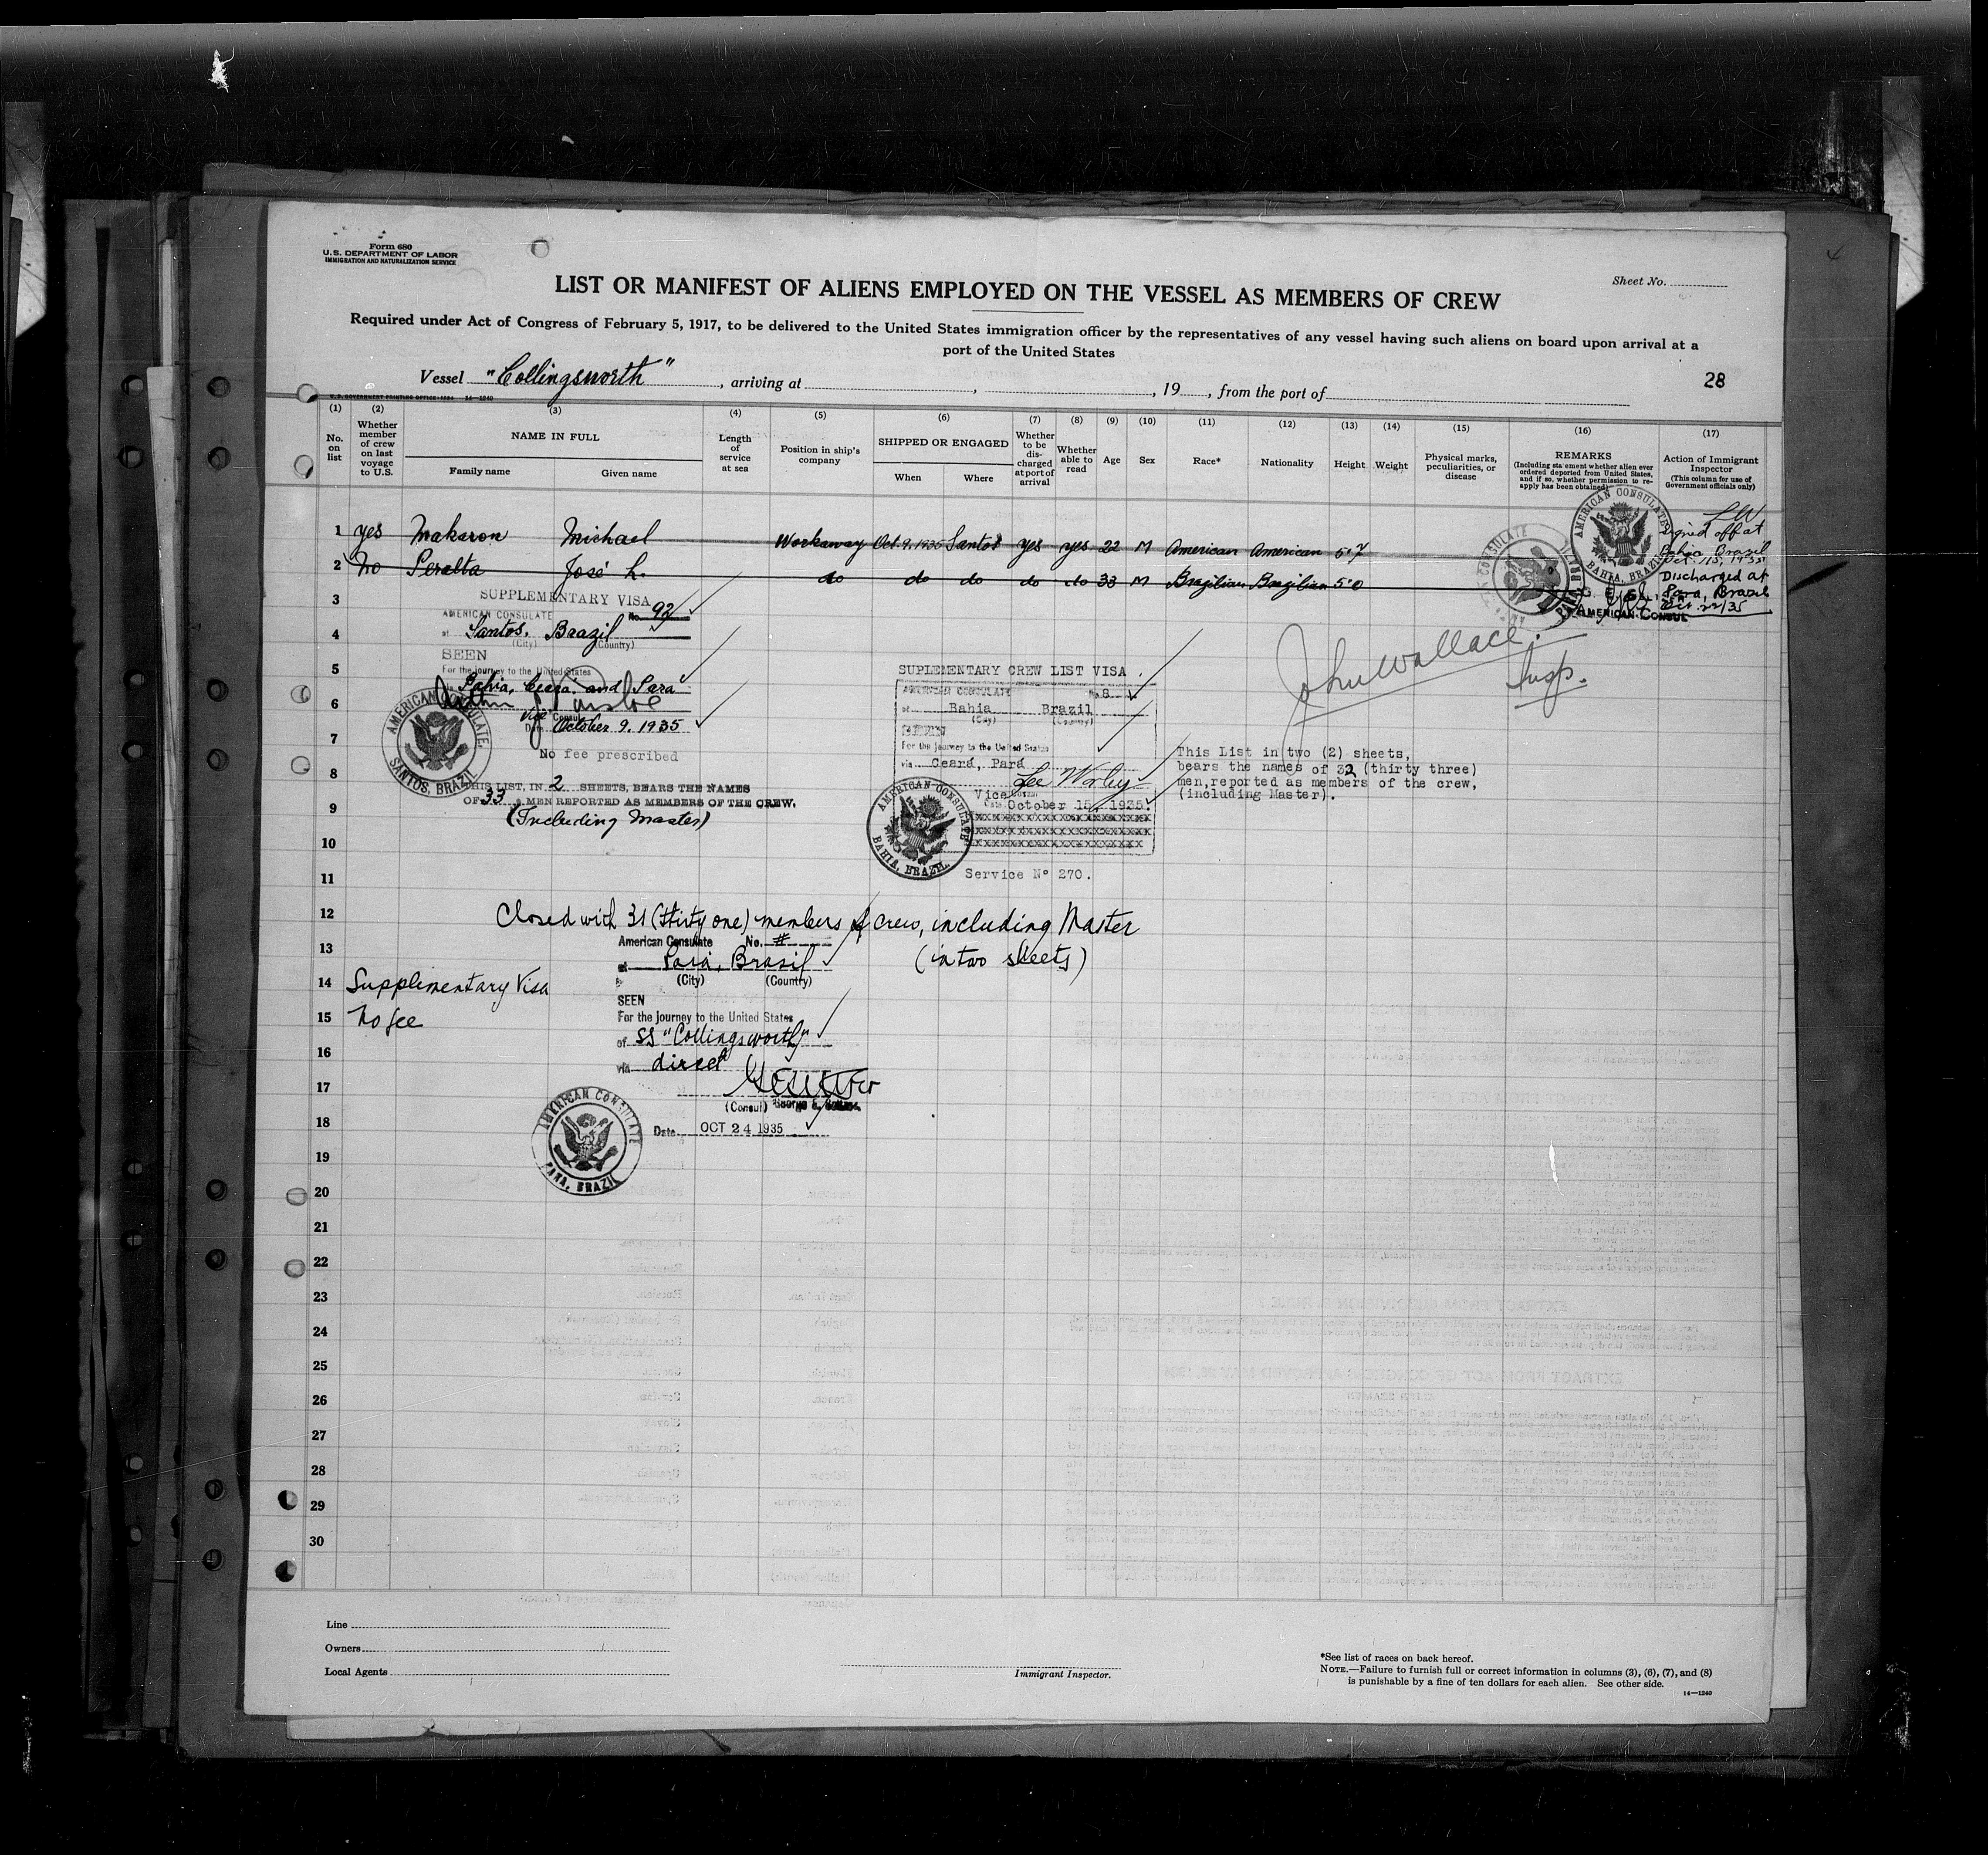 Form 680
U.S. DEPARTMENT OF LABOR
IMMIGRATION AND NATURALIZATION SERVICE
Sheet No.
LIST OR MANIFEST OF ALIENS EMPLOYED ON THE VESSEL AS MEMBERS OF CREW
Required under Act of Congress of February 5, 1917, to be delivered to the United States immigration officer by the representatives of any vessel having such aliens on board upon arrival at a
port of the United States
Vessel "Collingsworth", arriving at , , 19 , from the port of
28
U.S. GOVERNMENT PRINTING OFFICE 14—1240
(1) (2) (3) (4) (5) (6) (7) (8) (9) (10) (11) (12) (13) (14) (15) (16) (17)
No. on list
Whether member of crew on last voyage to U.S.
NAME IN FULL
Family name Given name
Length of service at sea
Position in ship's company
SHIPPED OR ENGAGED
When Where
Whether to be discharged at port of arrival
Whether able to read
Age
Sex
Race*
Nationality
Height
Weight
Physical marks, peculiarities, or disease
REMARKS
(Including statement whether alien ever ordered deported from United States, and if so, whether permission to reapply has been obtained)
Action of Immigrant Inspector
(This column for use of Government officials only)
1 yes Makaron Michael Workaway Oct. 9. 1935 Santos yes yes 22 M American American 5.7
Signed off at
Bahia Brazil
Oct. 15, 1935
2 No Peralta José L. do do do do do 33 M Brazilian Brazilian 5.0
Discharged at
Para, Brazil
Oct. 22/35
AMERICAN CONSULATE
BAHIA, BRAZIL
AMERICAN CONSUL
3
SUPPLEMENTARY VISA
AMERICAN CONSULATE No. 92
4
at Santos, Brazil
(City) (Country)
SEEN
5
For the journey to the United States
Bahia, Ceará and Para
6
Vice Consul
Date October 9. 1935
7
No fee prescribed
AMERICAN CONSULATE,
SANTOS, BRAZIL
8
THIS LIST, IN 2 SHEETS, BEARS THE NAMES
OF 33 MEN REPORTED AS MEMBERS OF THE CREW.
9
(Including Master)
10
11
John Wallace
Insp.
SUPLEMENTARY CREW LIST VISA.
AMERICAN CONSULATE No. 8
at Bahia Brazil
(City) (Country)
SEEN
For the journey to the United States
via Ceará, Pará
Lee Worley
Vice Consul
Date October 15, 1935.
XXXXXXXXXXXXXXXXXXXXXX
XXXXXXXXXXXXXXXXXXXXXX
XXXXXXXXXXXXXXXXXXXXXX
AMERICAN CONSULATE
BAHIA, BRAZIL.
Service Nº 270.
This List in two (2) sheets,
bears the names of 32 (thirty three)
men, reported as members of the crew,
(including Master).
12
Closed with 31 (thirty one) members of crew, including Master
(in two sheets)
13
American Consulate No. #
at Pará, Brasil
14
(City) (Country)
Supplimentary Visa
SEEN
15
No fee
For the journey to the United States
of SS "Collingsworth"
16
via direct
17
(Consul)
18
Date OCT 24 1935
AMERICAN CONSULATE
PARA, BRAZIL
19
20
21
22
23
24
25
26
27
28
29
30
Line
Owners
Local Agents
Immigrant Inspector.
*See list of races on back hereof.
NOTE.—Failure to furnish full or correct information in columns (3), (6), (7), and (8)
is punishable by a fine of ten dollars for each alien. See other side.
14—1240